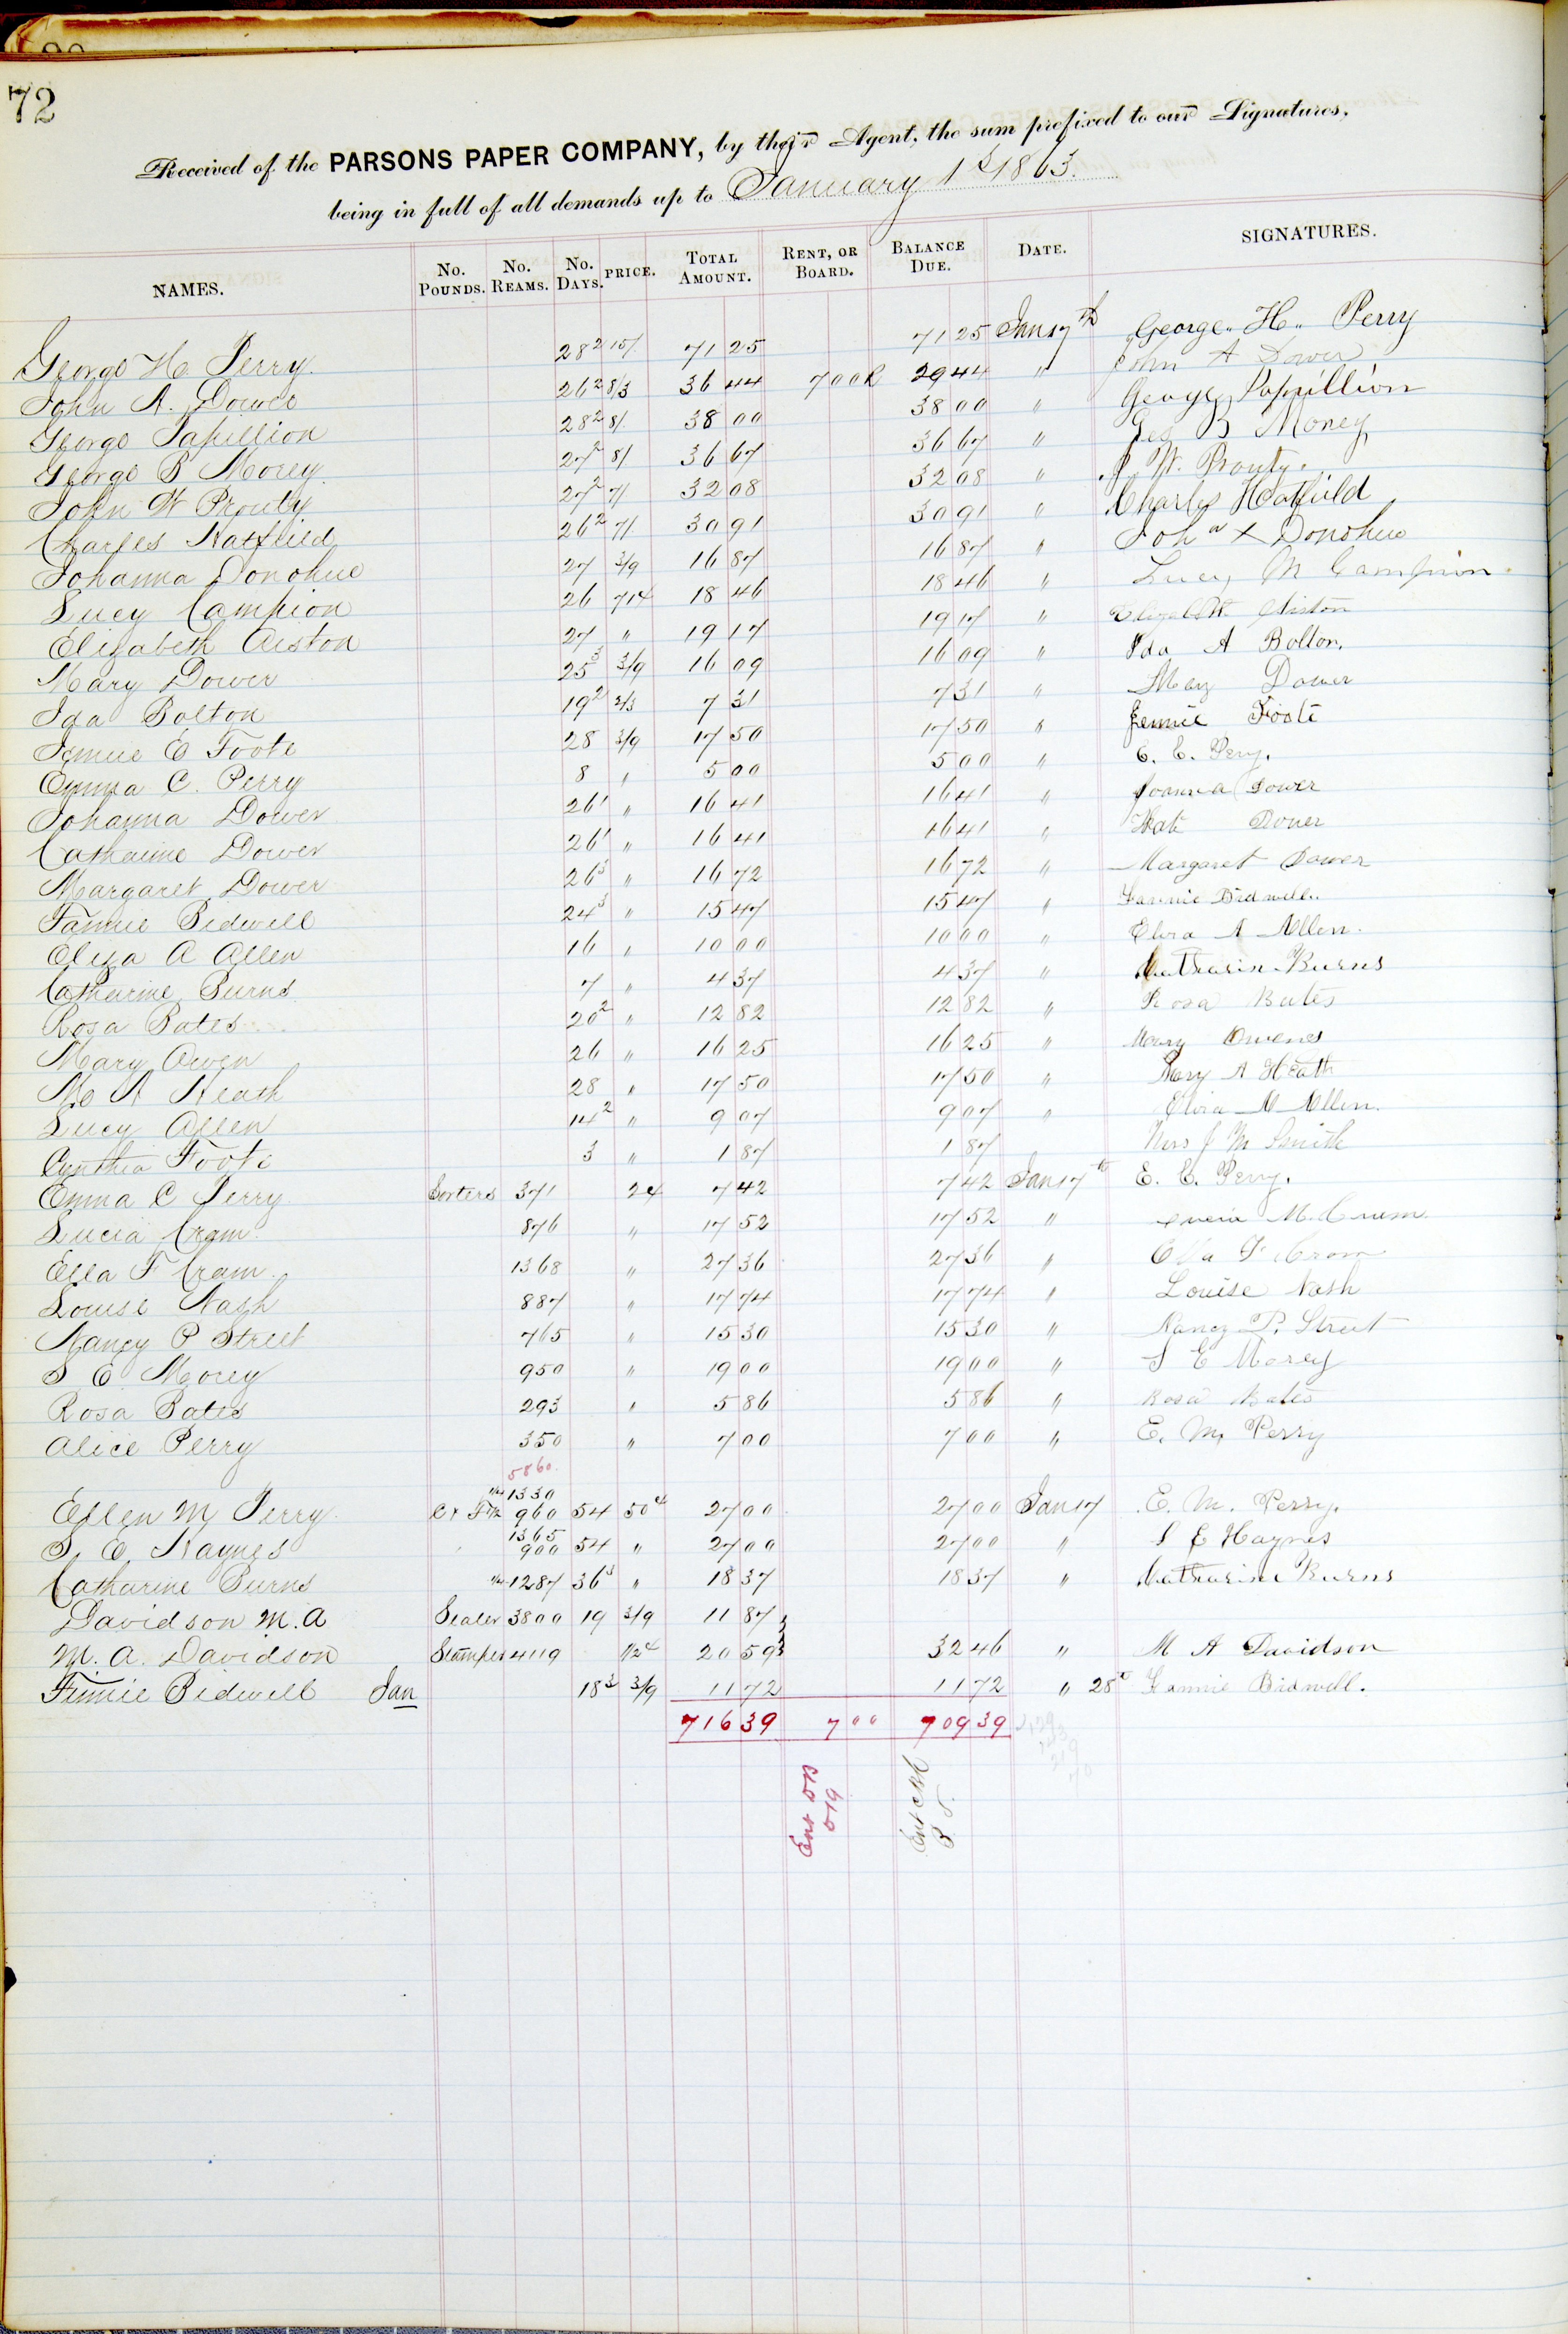 72
Received of the PARSONS PAPER COMPANY, by their Agent, the sum prefixed to our Signatures,
being in full of all demands up to January 1st 1863.
NAMES. No. Pounds. No. Reams. No. Days. PRICE. Total Amount. Rent, or Board. Balance Due. Date. SIGNATURES.
George H. Perry. 28 2 15/ 71 25 71 25 Jan 17th George. H. Perry
John A. Dower 26 2 8/3 36 44 7 00 R 29 44 " John A Dower
George Papillion 28 2 8/ 38 00 38 00 " George Papillion
George B Morey 27 2 8/ 36 67 36 67 " Geo B Morey
John W Prouty 27 2 7/ 32 08 32 08 " J. W. Prouty.
Charles Hatfield 26 2 7/ 30 91 30 91 " Charles Hatfield
Johanna Donohue 27 3/9 16 87 16 87 " Joh a x Donohue
Lucy Campion 26 71¢ 18 46 18 46 " Lucy M Campion
Elizabeth Aiston 27 " 19 17 19 17 " Elizabeth Aiston
Mary Dower 25 3 3/9 16 09 16 09 " Ida A Bolton.
Ida Bolton 19 2 2/3 7 31 7 31 " Mary Dower
Jennie E Foote 28 3/9 17 50 17 50 " Jennie Foote
Emma C. Perry 8 " 5 00 5 00 " E. C. Perry.
Johanna Dower 26 1 " 16 41 16 41 " Joanna Dower
Catharine Dower 26 1 " 16 41 16 41 " Kate Dower
Margaret Dower 26 3 " 16 72 16 72 " Margaret Dower
Fannie Bidwell 24 3 " 15 47 15 47 " Fannie Bidwell.
Eliza A Allen 16 " 10 00 10 00 " Elvira A Allen.
Catharine Burns 7 " 4 37 4 37 " Catharine Burns
Rosa Bates 20 2 " 12 82 12 82 " Rosa Bates
Mary Owen 26 " 16 25 16 25 " Mary Owens
M A Heath 28 " 17 50 17 50 " Mary A Heath
Lucy Allen 14 2 " 9 07 9 07 " Elvira A Allen.
Cynthia Foote 3 " 1 87 1 87 Mrs J M Smith
Emma C Perry Sorters 371 2¢ 7 42 7 42 Jan 17th E. C. Perry.
Lucia Cram 876 " 17 52 17 52 " Lucia M. Cram
Ella F Cram 1368 " 27 36 27 36 " Ella F Cram
Louise Nash 887 " 17 74 17 74 " Louise Nash
Nancy P Street 765 " 15 30 15 30 " Nancy P. Street
S E Morey 950 " 19 00 19 00 " S E Morey
Rosa Bates 293 " 5 86 5 86 " Rosa Bates
Alice Perry 350 " 7 00 7 00 " E. M. Perry
5860.
1330
Ellen M Perry 960 54 50¢ 27 00 27 00 Jan 17 E. M. Perry.
1365
S. E. Haynes 900 54 " 27 00 27 00 " S E Haynes
Catharine Burns 1287 36 3 " 18 37 18 37 " Catharine Burns
Davidson M. A Sealer 3800 19 3/9 11 87
M. A. Davidson Stamper 4119 1/2¢ 20 59 32 46 " M A Davidson
Fannie Bidwell Jan 18 3 3/9 11 72 11 72 " 28th Fannie Bidwell.
716 39 7 00 709 39